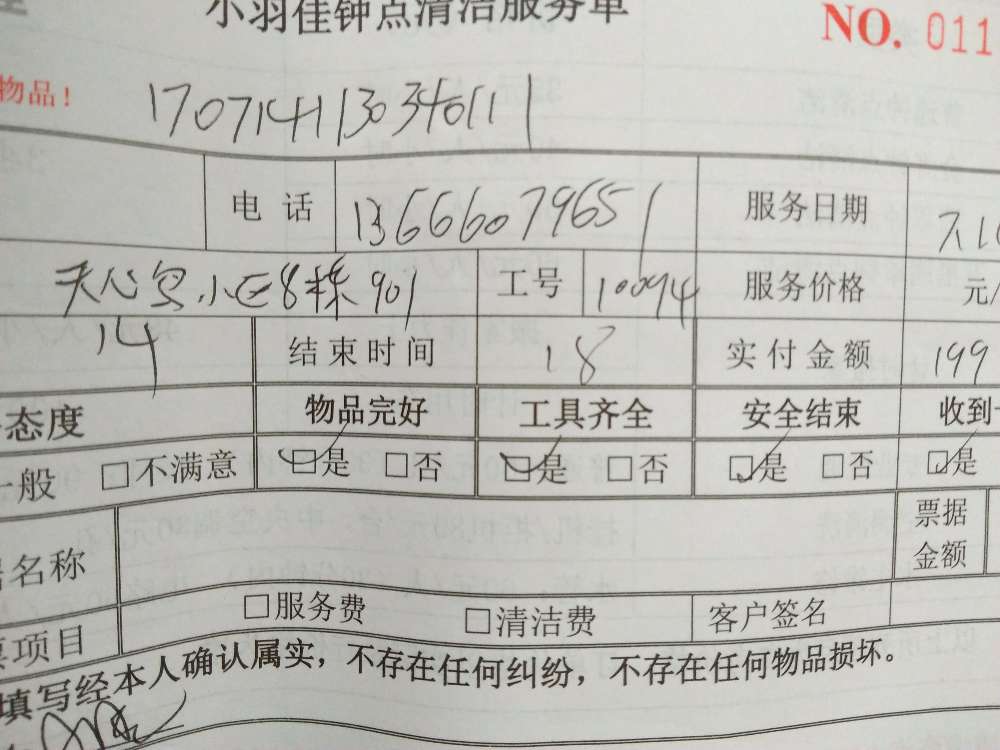 小羽佳钟点清洁服务单 NO. 011
物品！ 1707141130340111
电话 13666079651 服务日期
天心岛小区8栋901 工号 10094 服务价格 元/
14 结束时间 18 实付金额 199
态度 物品完好 工具齐全 安全结束 收到
一般 □不满意 ☑是 □否 ☑是 □否 ☑是 □否 ☑是
名称 票据金额
项目 □服务费 □清洁费 客户签名
填写经本人确认属实，不存在任何纠纷，不存在任何物品损坏。